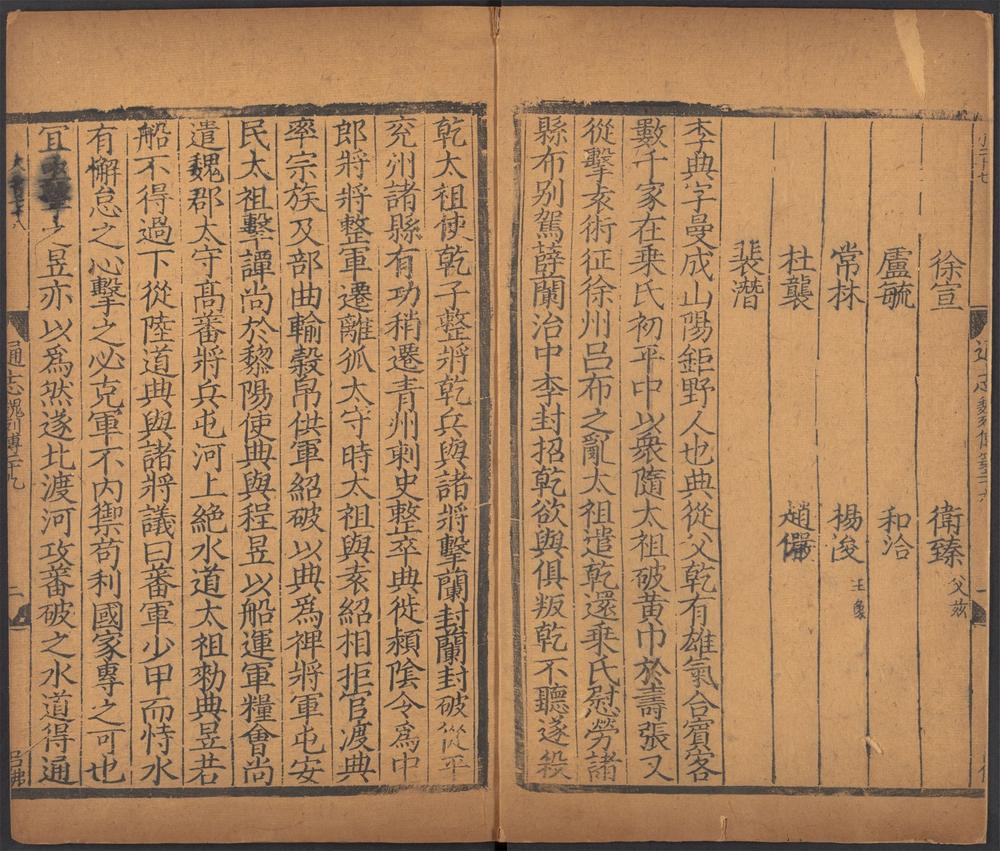 徐宣 衛臻父茲
盧毓 和洽
常林 楊浚王象
杜襲 趙儼
裴潛
李典字曼成山陽鉅野人也典從父乾有雄氣合賓客
數千家在乗氏初平中以衆隨太祖破黃巾於壽張又
從擊袁術征徐州呂布之亂太祖遣乾還乗氏慰勞諸
縣布別駕薛蘭治中李封招乾欲與俱叛乾不聽遂殺
乾太祖使乾子整將乾兵與諸將擊蘭封蘭封破從平
兖州諸縣有功稍遷青州剌史整卒典徙頴陰令為中
郎將將整軍遷離狐太守時太祖與袁紹相拒官渡典
率宗族及部曲輸穀帛供軍紹破以典為裨將軍屯安
民太祖擊譚尚於黎陽使典與程昱以船運軍糧會尚
遣魏郡太守高蕃將兵屯河上絶水道太祖勑典昱若
船不得過下從陸道典與諸將議曰蕃軍少甲而恃水
有懈怠之心擊之必克軍不内禦苟利國家專之可也
宜亟擊之昱亦以爲然遂北渡河攻蕃破之水道得通
通志魏列傳二十九
二
呂沸